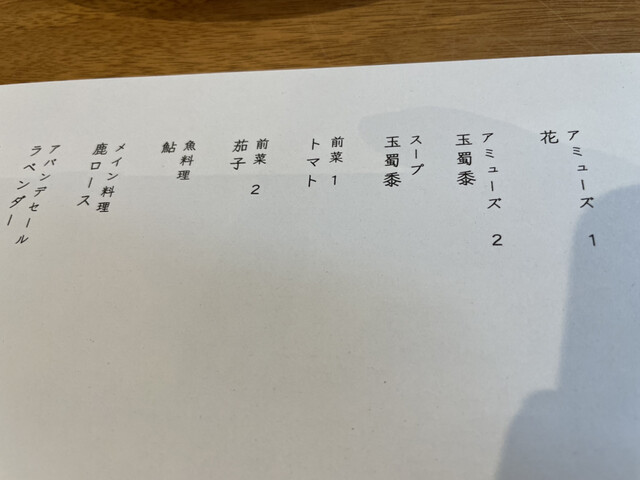 アミューズ 1
花
アミューズ 2
玉蜀黍
スープ
玉蜀黍
前菜 1
トマト
前菜 2
茄子
魚料理
鮎
メイン料理
鹿ロース
アバンデセール
ラベンダー